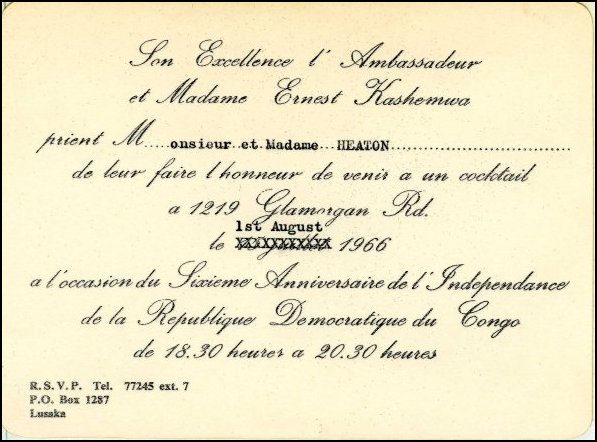 Son Excellence l' Ambassadeur
et Madame Ernest Kashemwa
prient M....onsieur et Madame HEATON................................
de leur faire l honneur de venir a un cocktail
a 1219 Glamorgan Rd.
1st August
le XXXXXXXXXXX 1966
a l'occasion du Sixieme Anniversaire de l' Independance
de la Republique Democratique du Congo
de 18.30 heures a 20.30 heures
R.S.V.P. Tel. 77245 ext. 7
P.O. Box 1287
Lusaka